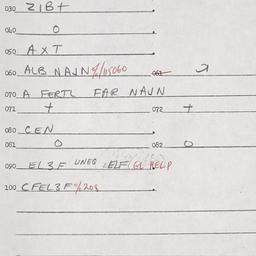 030 ZIBT
040 0
050 AXT
060 ALB NAJN %/115060 061
070 A FERTL FAR NAJN
071 + 072 +
080 CEN
081 0 082 0
090 EL3F UNEQ ELF/GL HELP
100 CFEL3F %20s